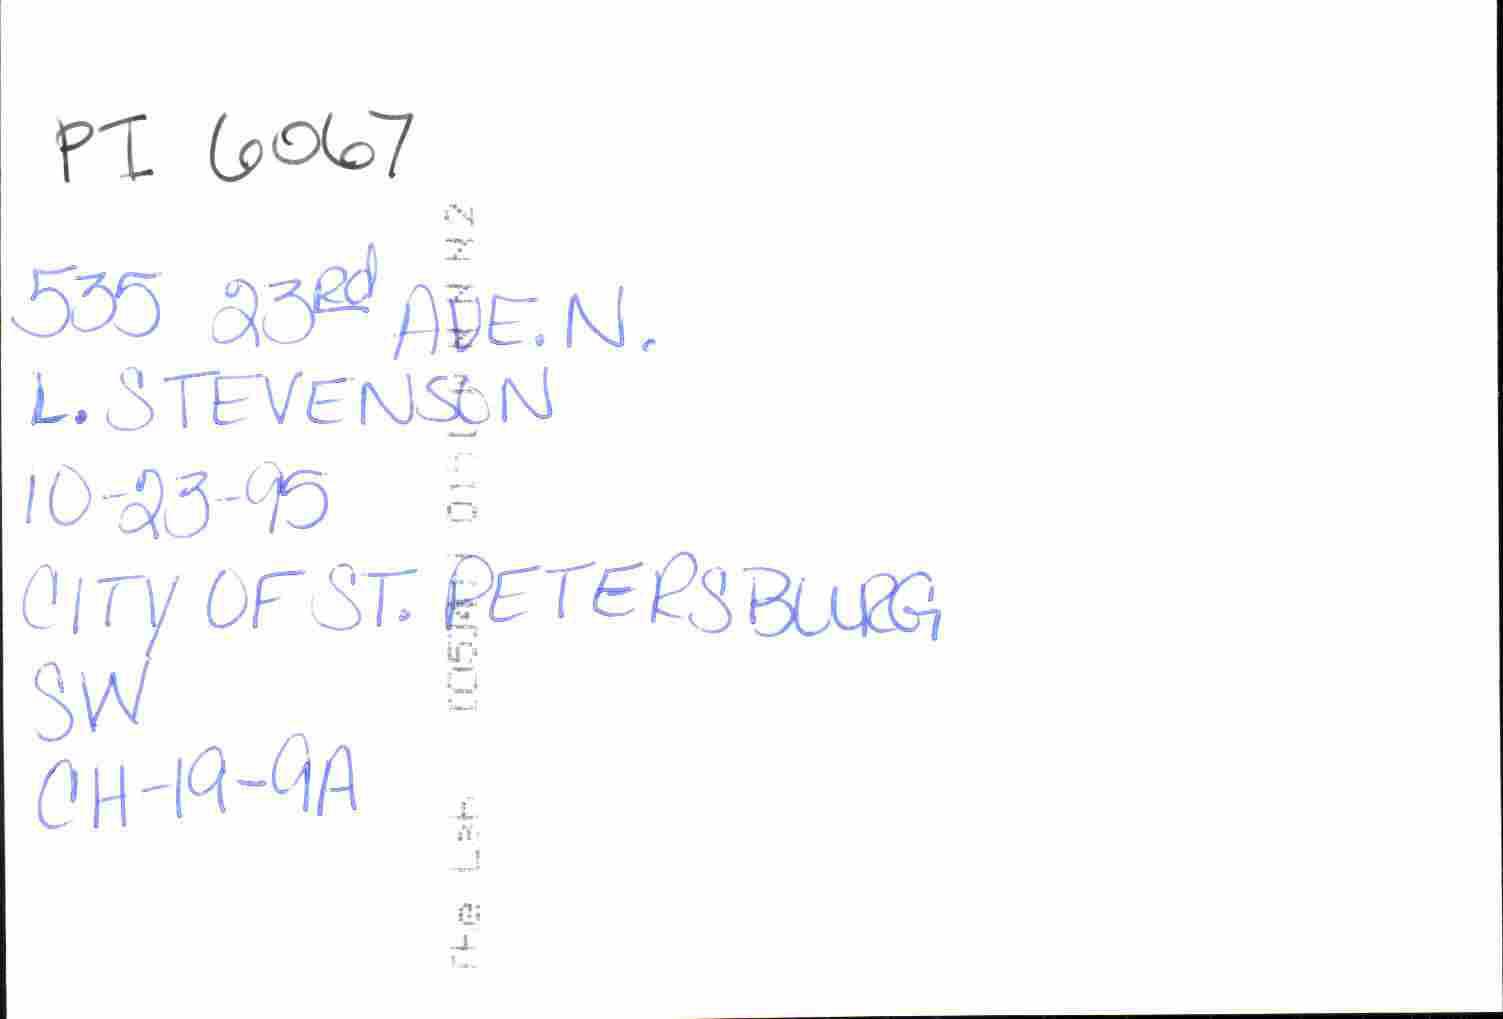 PI 6067
535 23rd AVE. N.
L. STEVENSON
10-23-95
CITY OF ST. PETERSBURG
SW
CH-19-9A